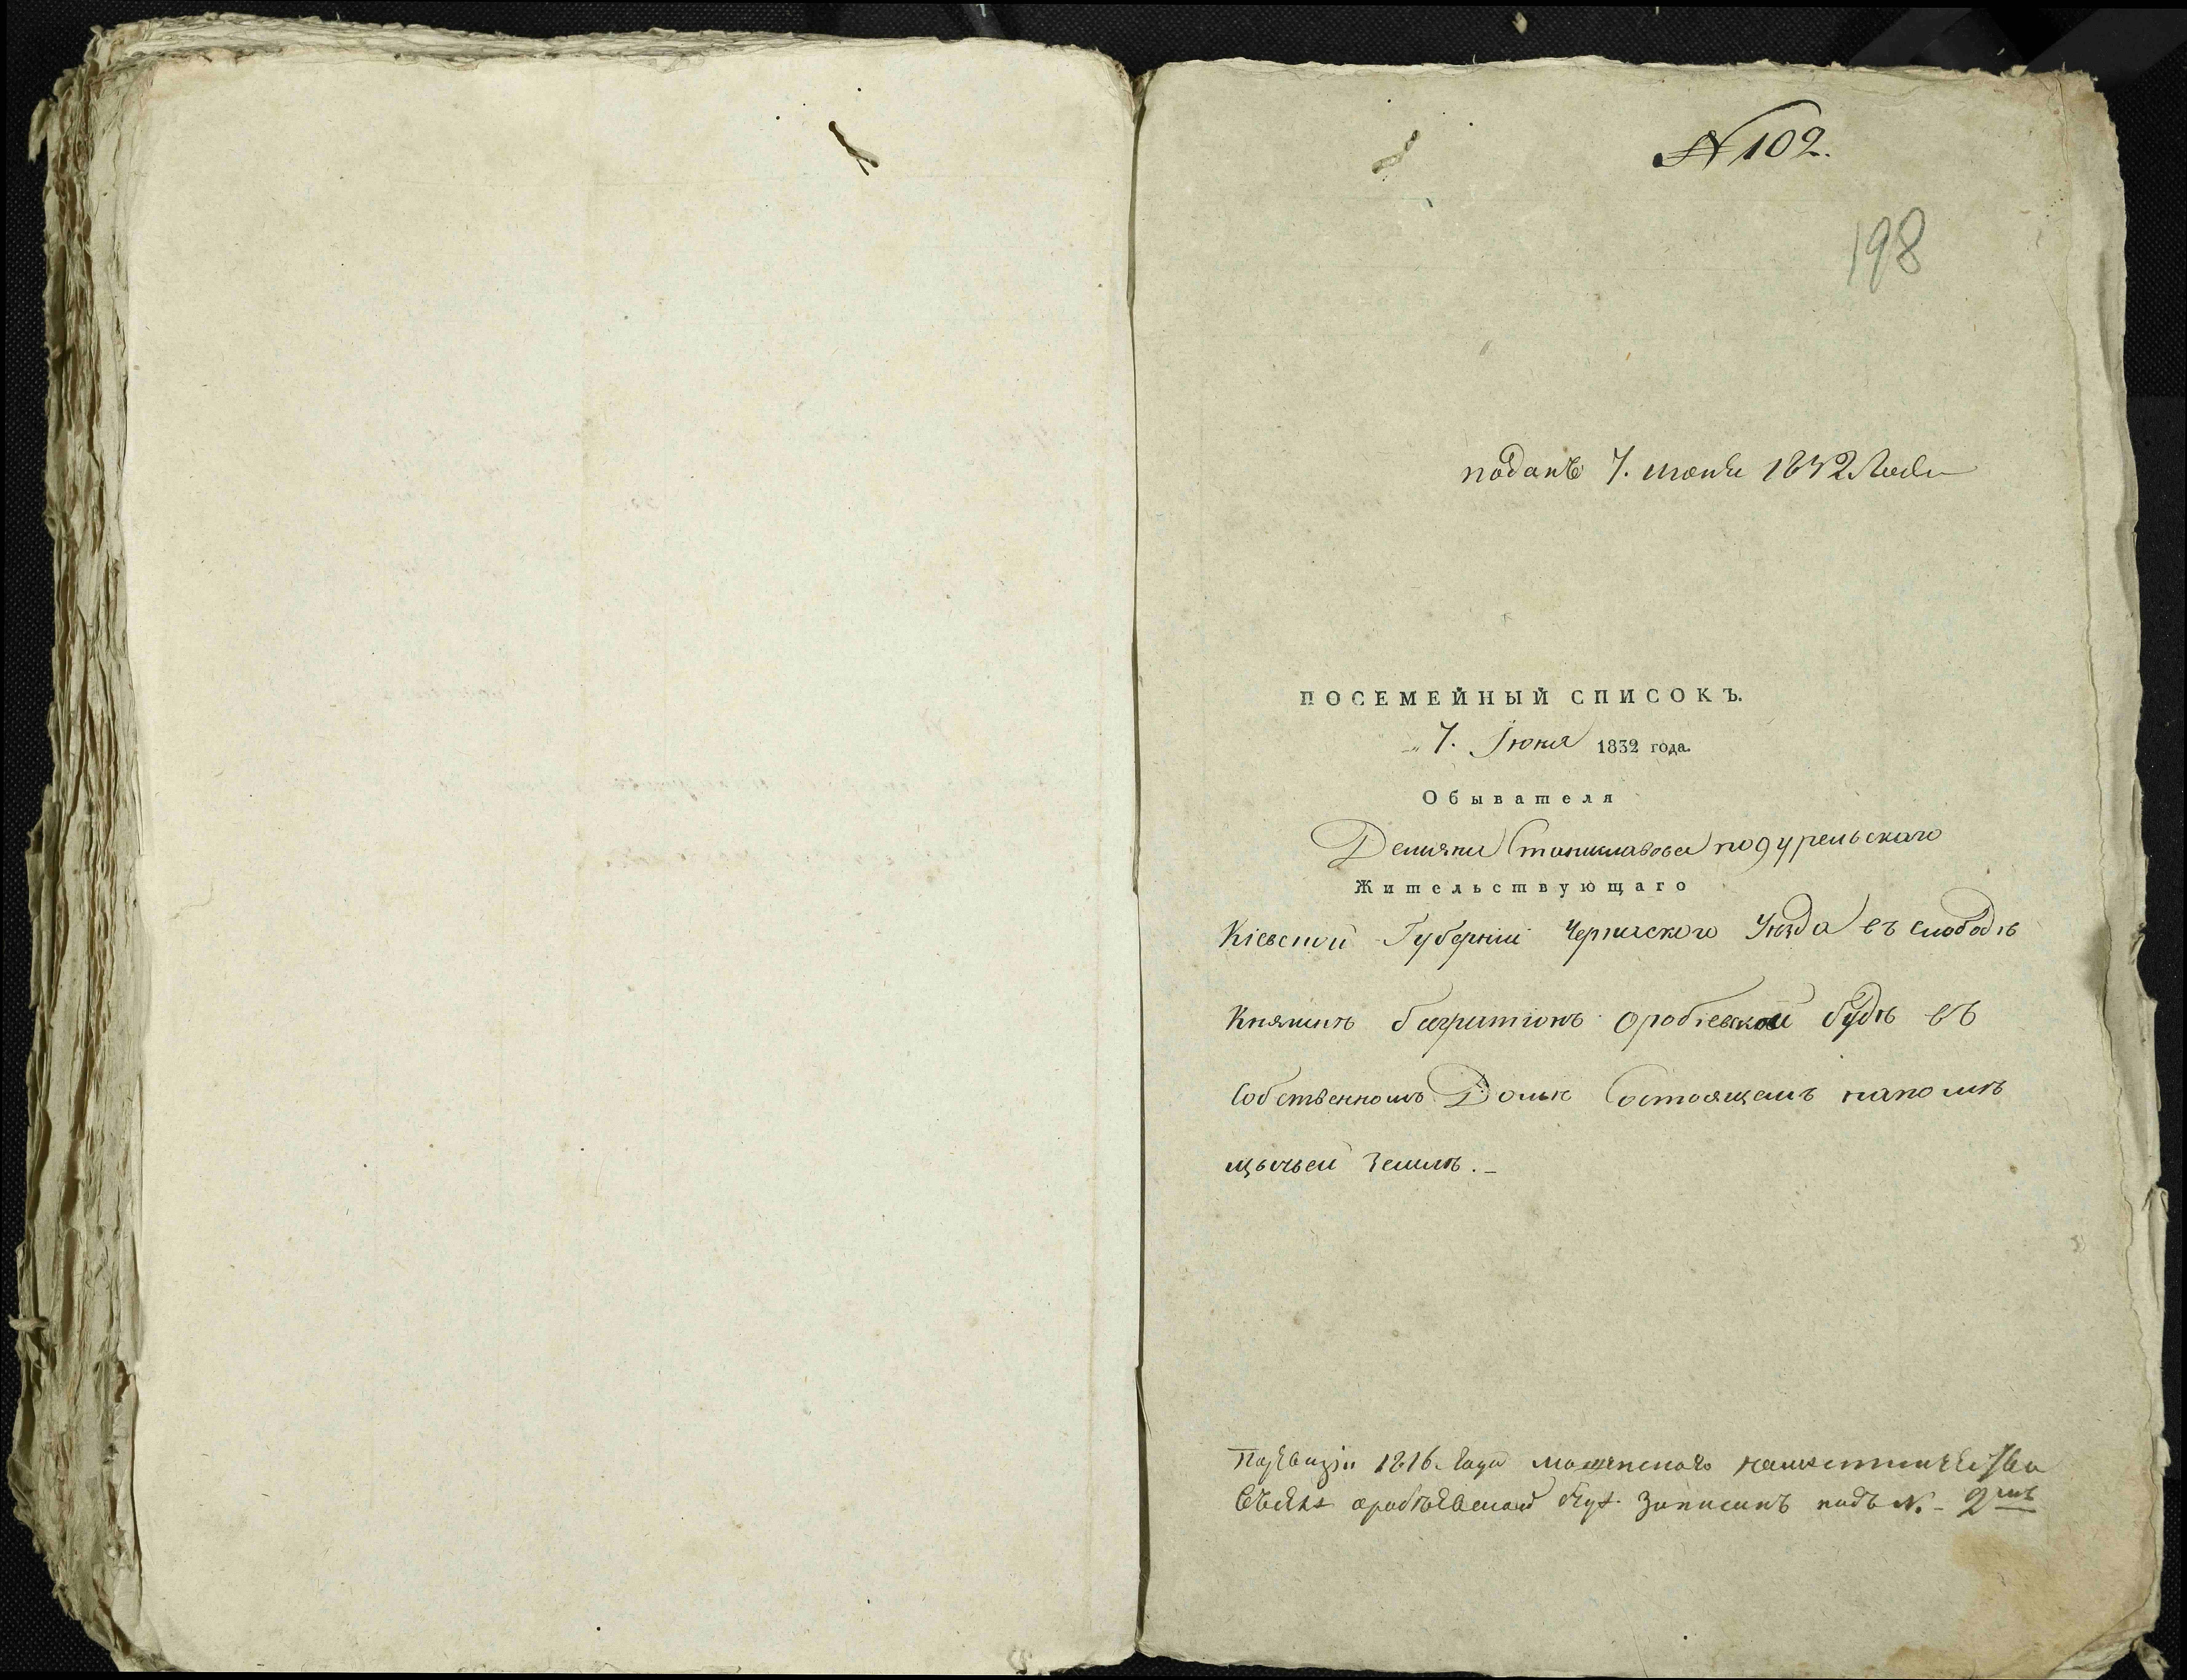 № 102.
198
поданъ 7. июня 1832 Года
ПОСЕМЕЙНЫЙ СПИСОКЪ.
7. Іюня 1832 года.
Обывателя
Демяна Станиславова подурельскаго
Жительствующаго
Кіевской Губерніи Черкаского Уѣзда въ слободѣ
Княгинѣ багратіонъ оробіевской будѣ въ
Собственномъ Домѣ Состоящемъ напомѣ
щычьей Землѣ.
1816. года намѣстничества
записанъ подъ №. 2мъ